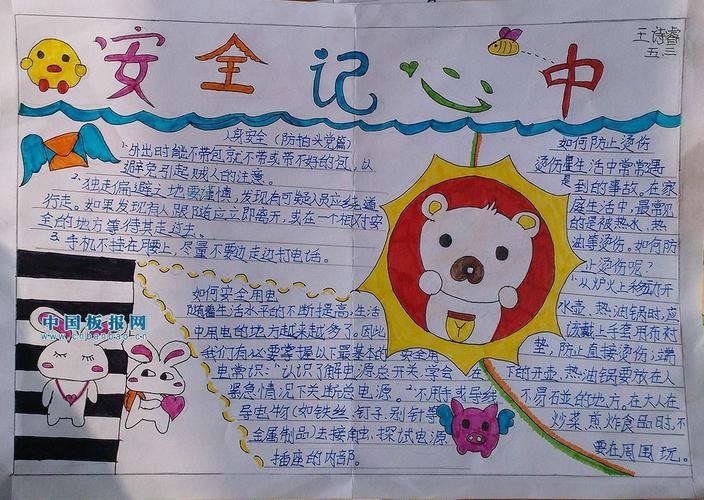 王诗睿
五.三
安全记心中
人身安全（防拍头党篇）
1.外出时能不带包就不带或带不好的包，以
避免引起贼人的注意。
2.独走偏避之地要谨慎，发现有可疑人员应绕道
行走。如果发现有人跟随应立即离开，或在一个相对安
全的地方等待其走过去。
3.手机不挂在腰上，尽量不要边走边打电话。
如何安全用电
随着生活水平的不断提高，生活
中用电的地方越来越多了。因此
我们有必要掌握以下最基本的安全用
电常识：1.认识了解电源总开关，学会
紧急情况下关断总电源。2.不用手或导线
导电物（如铁丝、钉子、别针等
金属制品）去接触、探试电源
插座的内部。
如何防止烫伤
烫伤是生活中常常遇
到的事故。在家
庭生活中，最常见
的是被热水、热
油等烫伤。如何防
止烫伤呢？
1.从炉火上移动开
水壶、热油锅时，应
该戴上手套用布衬
垫，防止直接烫伤；端
下的开壶、热油锅要放在人
不易石並的地方。在大人在
炒菜、煎炸食品时，不
要在周围玩。
中国板报网
www.cnbanbao.cn